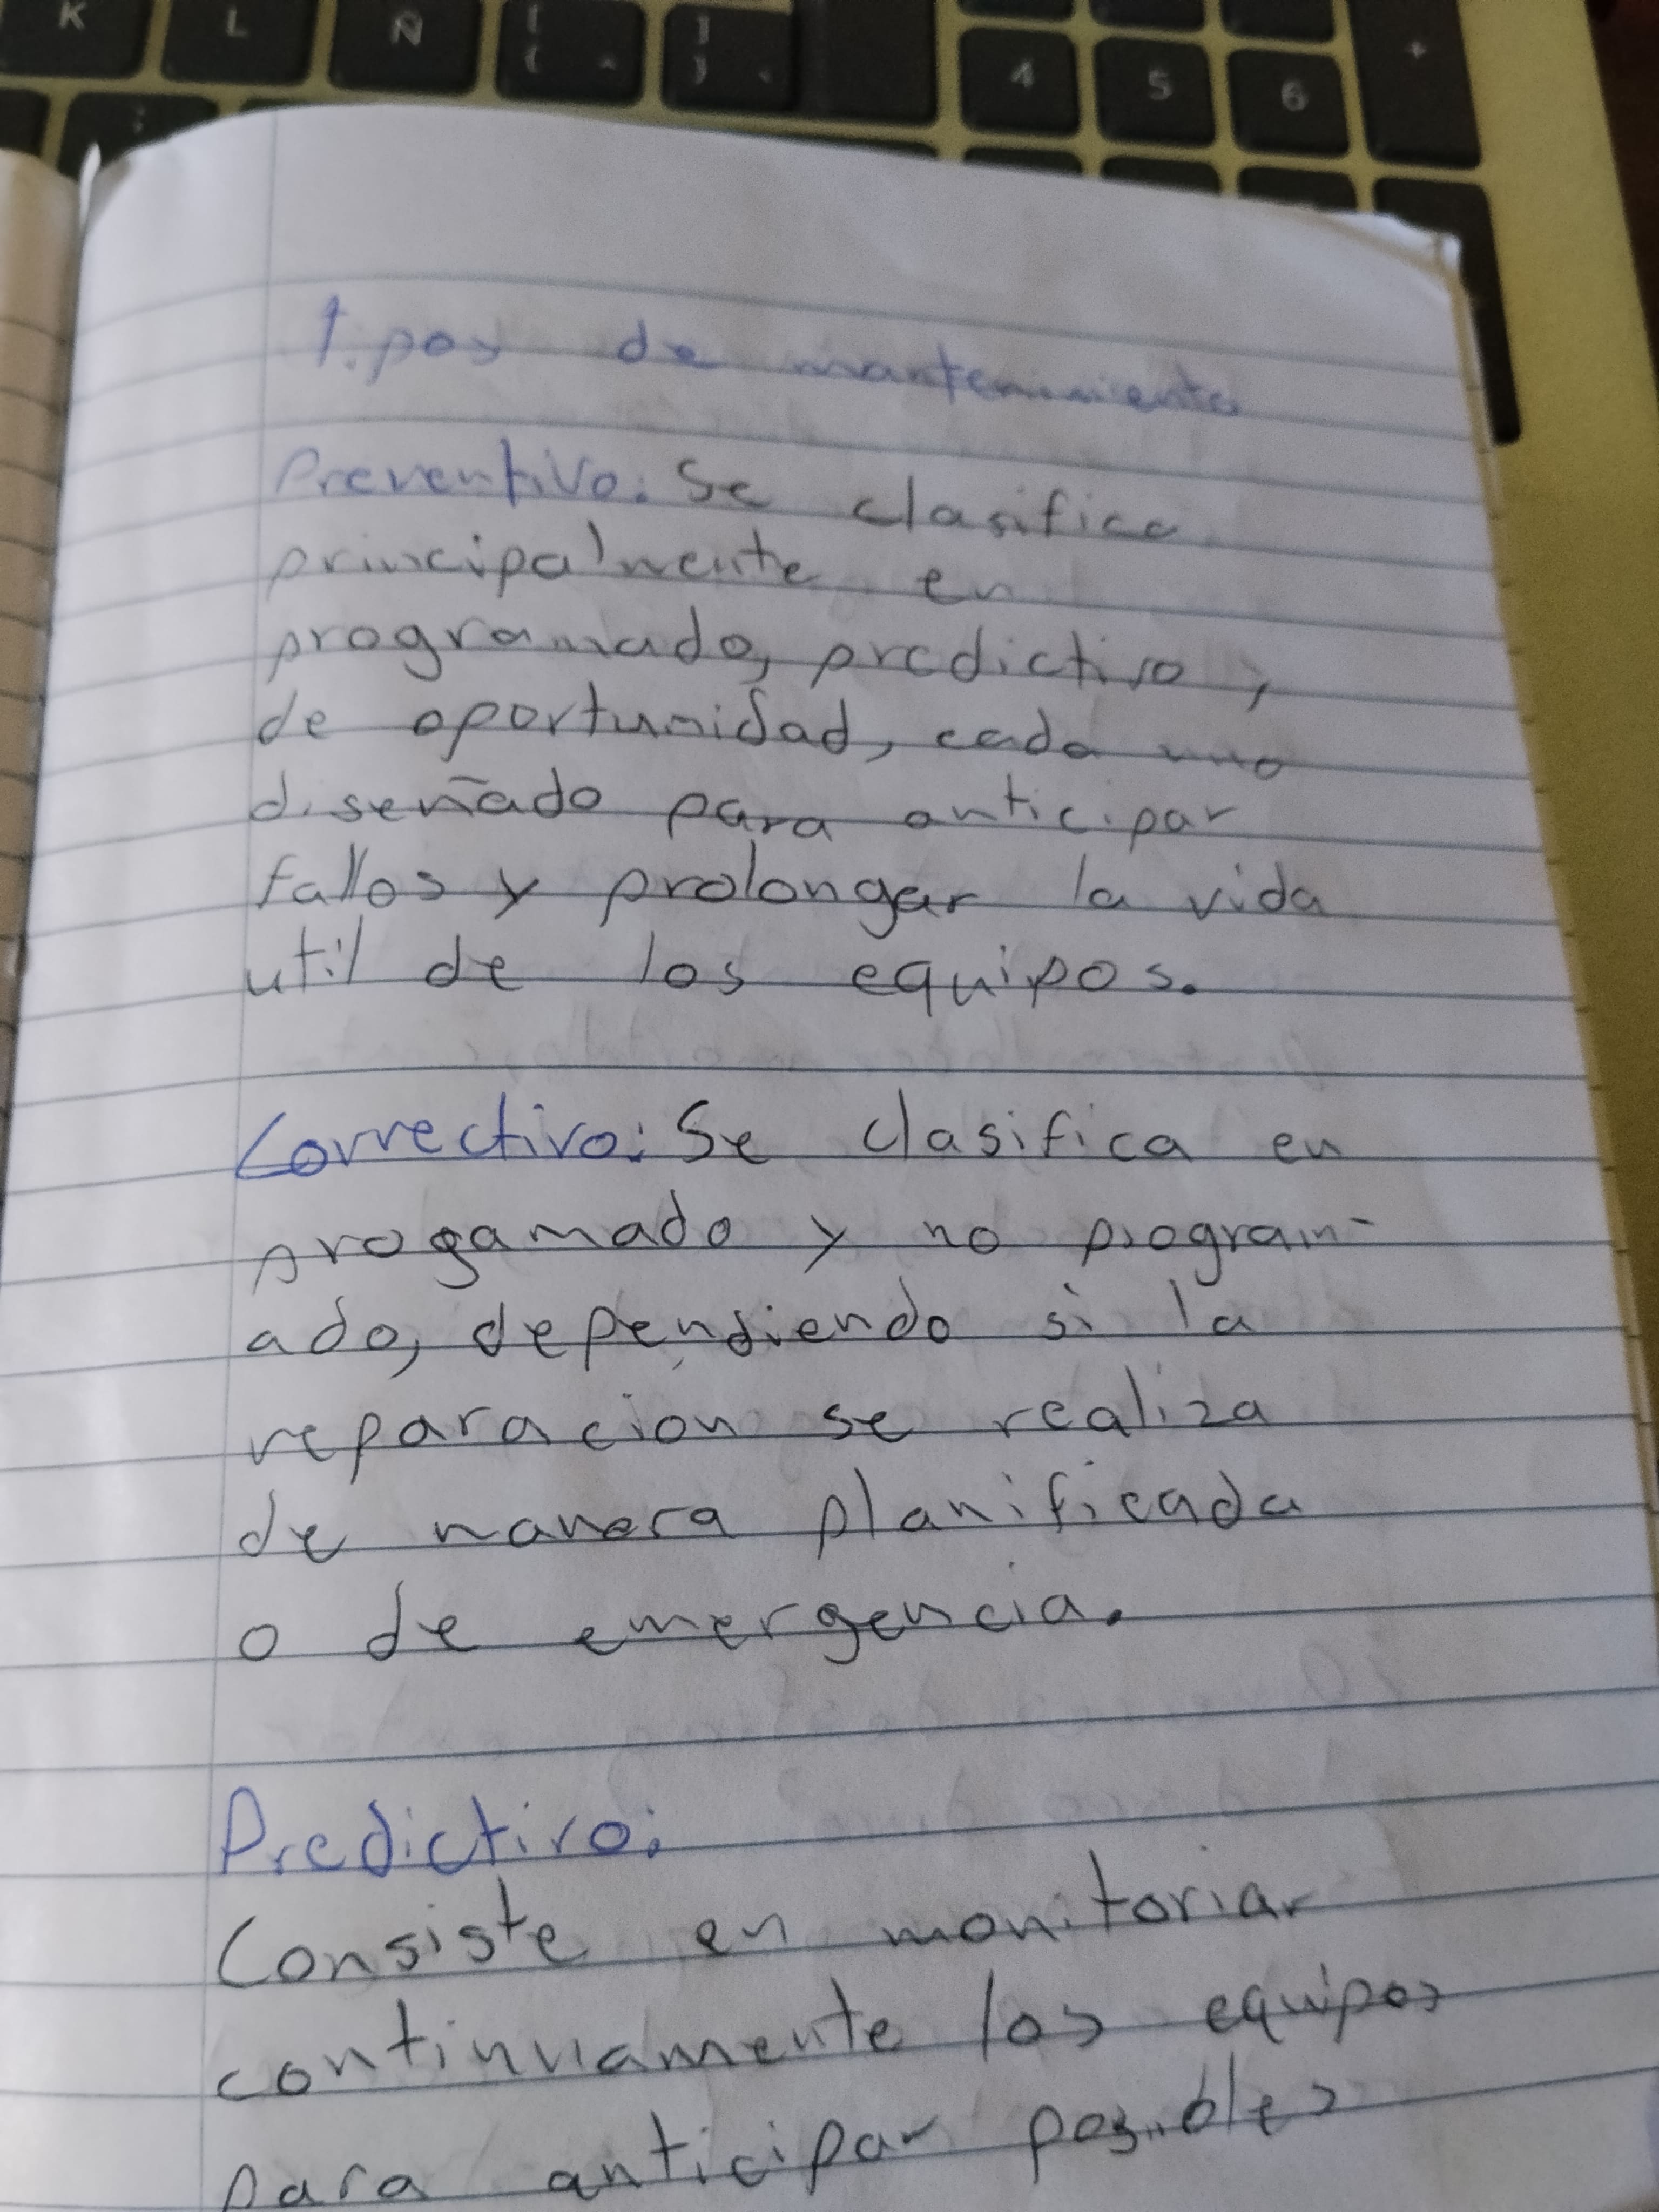 K L Ñ [ { ^ ] } ` 4 5 6 +
Tipos de mantenimiento
Preventivo: Se clasifica
principalmente en
programado, predictivo y
de oportunidad, cada uno
diseñado para anticipar
fallos y prolongar la vida
util de los equipos.
Correctivo: Se clasifica en
progamado y no program-
ado, dependiendo si la
reparacion se realiza
de manera planificada
o de emergencia.
Predictivo:
Consiste en monitoriar
continuamente los equipos
para anticipar posibles